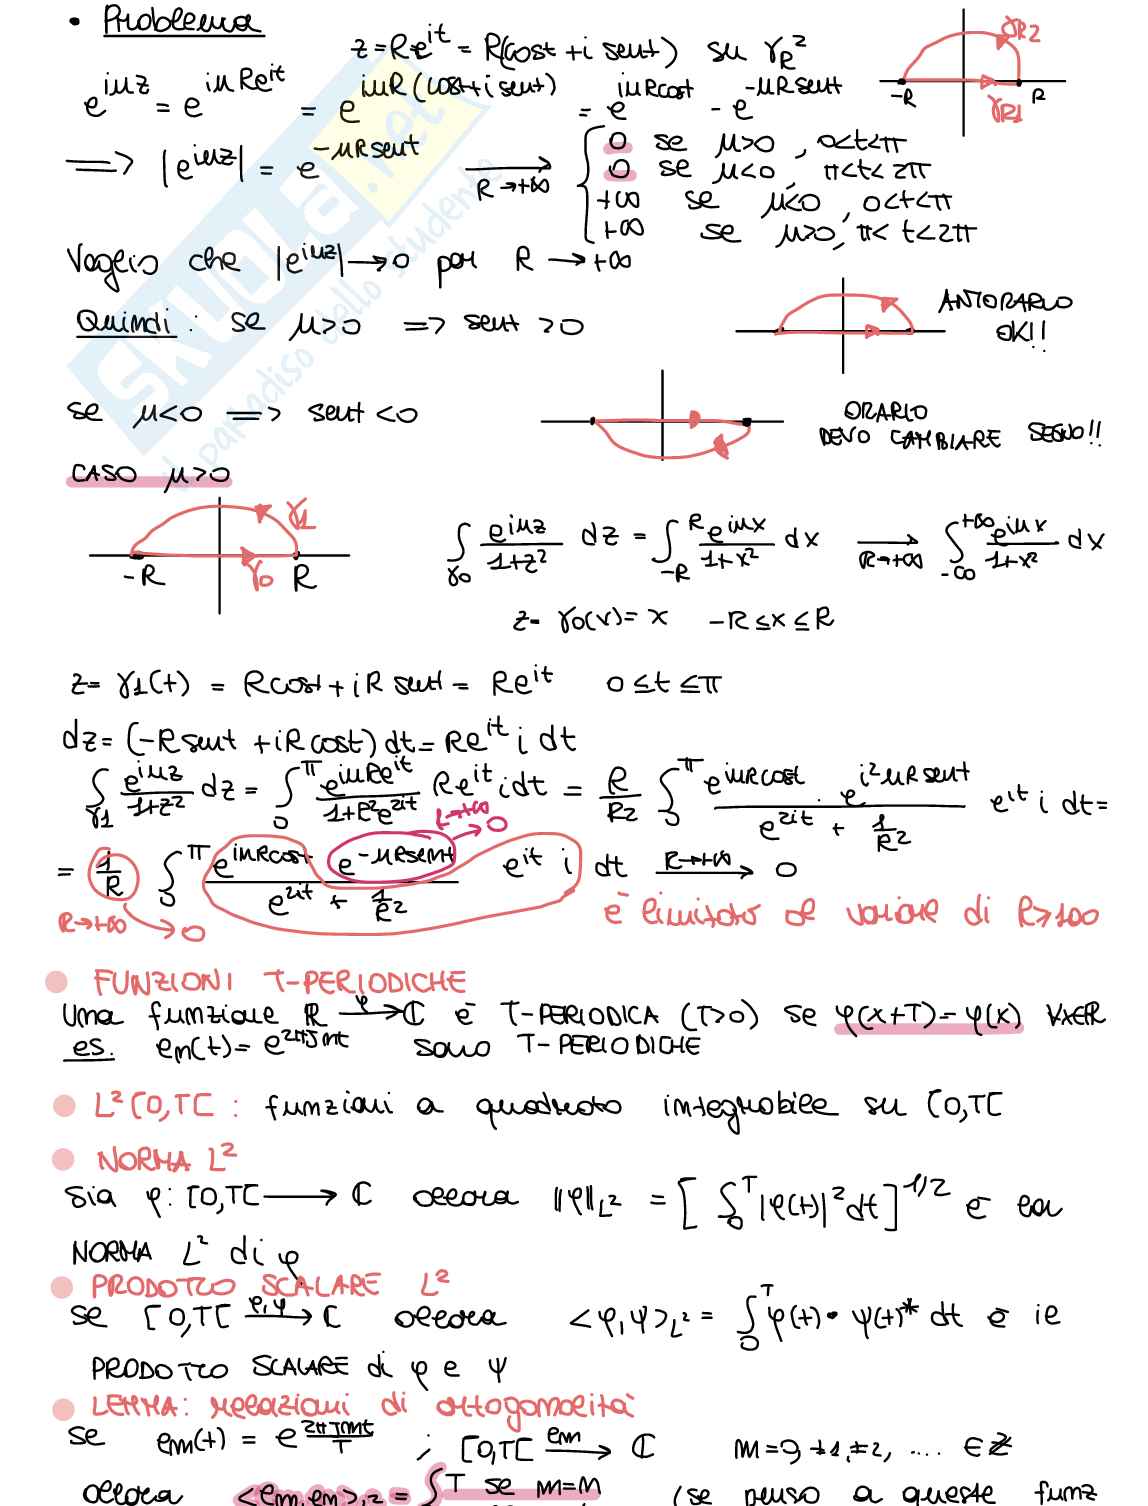 • Problema
z=Re^{it} = R(cost+i sent) su γ_R^2
γR2
-R R
γR1
e^{iuz} = e^{iuRe^{it}} = e^{iuR(cost+i sent)} = e^{iuRcost} - e^{-uRsent}
==> |e^{iuz}| = e^{-uRsent} → R→+∞ { 0 se u>0 , 0<t<π
0 se u<0, π<t<2π
+∞ se u<0, 0<t<π
+∞ se u>0, π<t<2π
Voglio che |e^{iuz}|→0 per R→+∞
Quindi: se u>0 => sent >0
ANTORARIO
OK!!
se u<0 => sent <0
ORARIO
DEVO CAMBIARE SEGNO!!
CASO u>0
γ1
-R γ0 R
∫_{γ0} e^{iuz}/(1+z²) dz = ∫_{-R}^{R} e^{iux}/(1+x²) dx → R→+∞ ∫_{-∞}^{+∞} e^{iux}/(1+x²) dx
z= γ0(x)= x -R≤x≤R
z= γ1(t) = Rcost+iR sent = Re^{it} 0≤t≤π
dz= (-Rsent +iRcost) dt = Re^{it} i dt
∫_{γ1} e^{iuz}/(1+z²) dz = ∫_0^π e^{iuRe^{it}}/(1+R²e^{2it}) Re^{it} i dt = R/R2 ∫_0^π e^{iuRcost} · e^{i²uRsent}/(e^{2it} + 1/R²) e^{it} i dt =
= 1/R ∫_0^π e^{iuRcost} e^{-uRsent}/(e^{2it} + 1/R²) e^{it} i dt → R→+∞ 0
R→+∞ → 0
→ 0
è limitato al variare di R>100
FUNZIONI T-PERIODICHE
Una funzione R →^φ ℂ è T-PERIODICA (T>0) se φ(x+T)=φ(x) ∀x∈R
es. en(t)= e^{2πJnt} sono T-PERIODICHE
L²[0,T[ : funzioni a quadrato integrabile su [0,T[
NORMA L²
Sia φ: [0,T[ → ℂ allora ‖φ‖_{L²} = [∫_0^T |φ(t)|² dt]^{1/2} è la
NORMA L² di φ
PRODOTTO SCALARE L²
se [0,T[ →^{φ,ψ} ℂ allora <φ,ψ>_{L²} = ∫_0^T φ(t)• ψ(t)* dt è il
PRODOTTO SCALARE di φ e ψ
LEMMA: relazioni di ortogonalità
se em(t) = e^{2πJmt/T} ; [0,T[ →^{em} ℂ m=0,±1,±2, ... ∈ℤ
allora <em,en>_{L²} = ∫ T se m=n (se penso a queste funz
SKUOLA.net
il paradiso dello studente